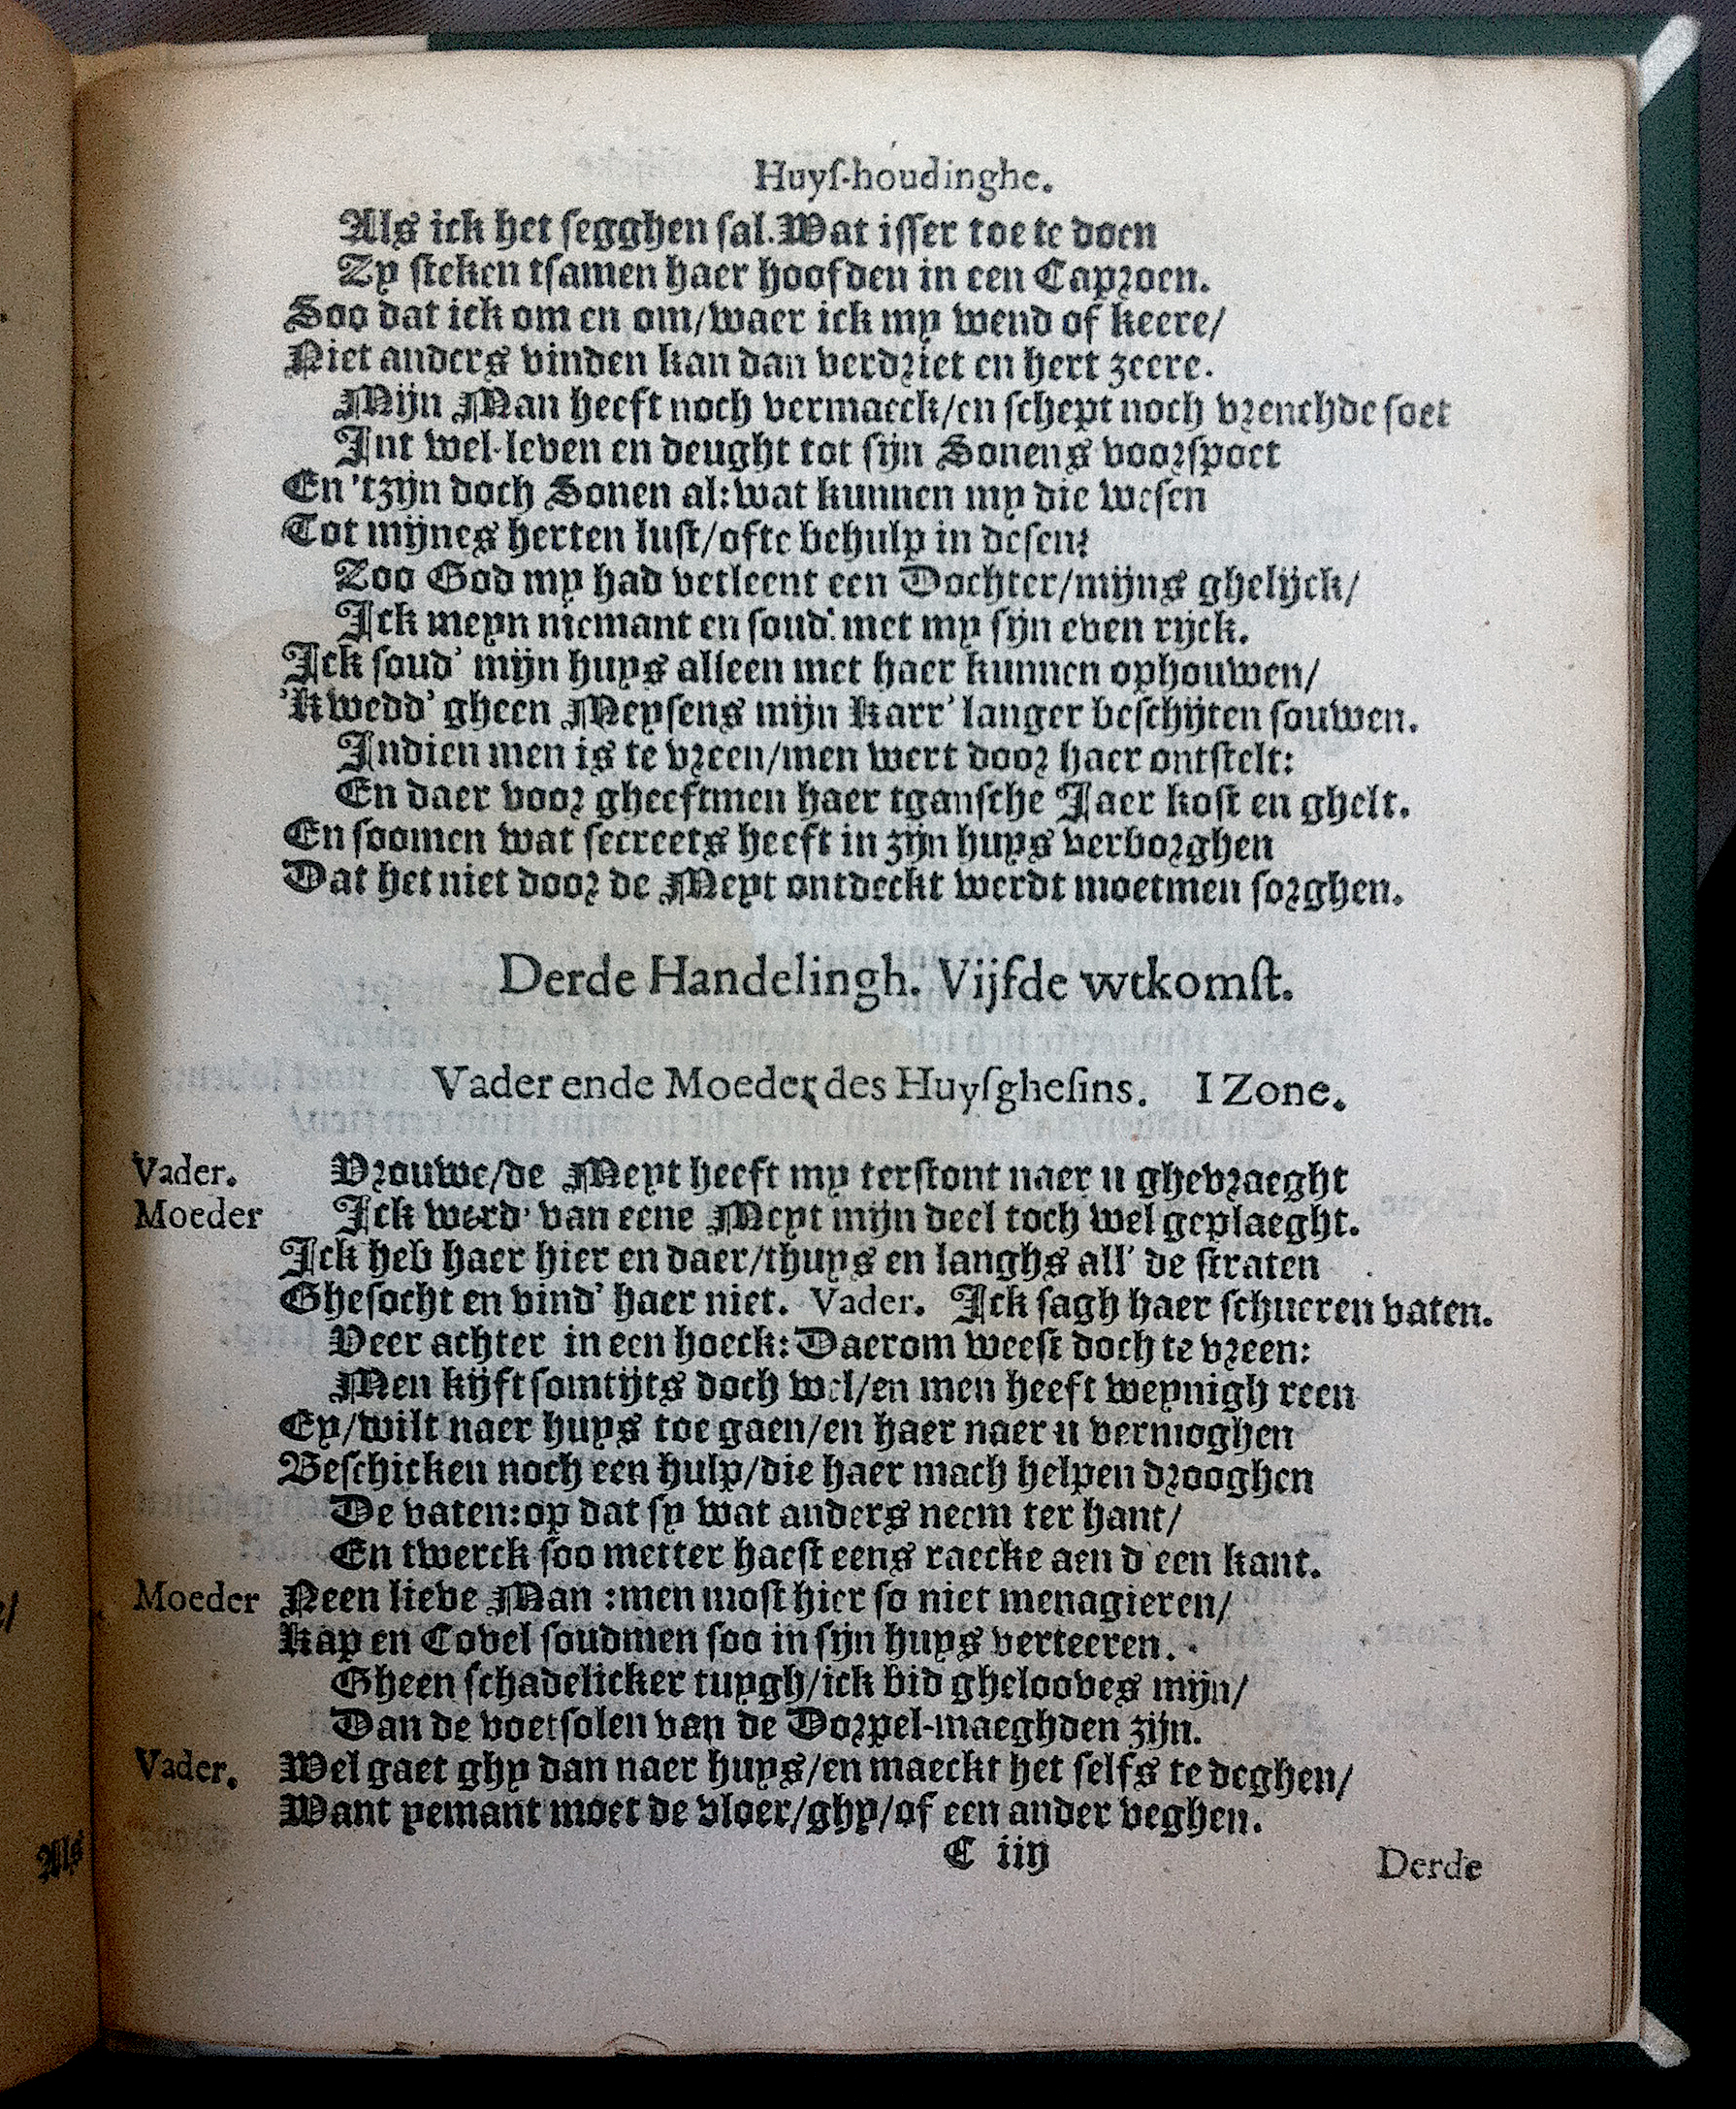 Huyſ-houdinghe.
Als ick het ſegghen ſal. Wat iſſer toe te doen
Zy ſteken tſamen haer hoofden in een Caproen.
Soo dat ick om en om/waer ick my wend of keere/
Niet anders vinden kan dan verdriet en hert zeere.
Mijn Man heeft noch vermaeck/en ſchept noch vrenchde ſoet
Int wel-leven en deught tot ſijn Sonens voorſpoet
En 'tzijn doch Sonen al: wat kunnen my die weſen
Tot mijnes herten luſt/ofte behulp in deſen?
Zoo God my had verleent een Dochter/mijns ghelijck/
Ick meyn niemant en ſoud' met my ſijn even rijck.
Ick ſoud' mijn huys alleen met haer kunnen ophouwen/
'k wedd' gheen Meyſens mijn karr' langer beſchijten ſouwen.
Indien men is te vreen/men wert door haer ontſtelt:
En daer voor gheeftmen haer tganſche Jaer koſt en ghelt.
En ſoomen wat ſecreets heeft in zijn huys verborghen
Dat het niet door de Meyt ontdeckt werdt moetmen ſorghen.
Derde Handelingh. Vijfde wtkomſt.
Vader ende Moeder des Huyſgheſins. I Zone.
Vader. Vrouwe/de Meyt heeft my terſtont naer u ghevraeght
Moeder Ick werd' van eene Meyt mijn deel toch wel geplaeght.
Ick heb haer hier en daer/thuys en langhs all' de ſtraten
Gheſocht en vind' haer niet. Vader. Ick ſagh haer ſchueren vaten.
Veer achter in een hoeck: Daerom weeſt doch te vreen:
Men kijft ſomtijts doch wel/en men heeft weynigh reen
Ey/wilt naer huys toe gaen/en haer naer u vermoghen
Beſchicken noch een hulp/die haer mach helpen drooghen
De vaten: op dat ſy wat anders neem ter hant/
En twerck ſoo metter haeſt eens raecke aen d'een kant.
Moeder Neen lieve Man : men moſt hier ſo niet menagieren/
Kap en Covel ſoudmen ſoo in ſijn huys verteeren.
Gheen ſchadelicker tuygh/ick bid ghelooves mijn/
Dan de voetſolen van de Dorpel-maeghden zijn.
Vader. Wel gaet ghy dan naer huys/en maeckt het ſelfs te deghen/
Want yemant moet de vloer/ghy/of een ander veghen.
C iiij
Derde
Als